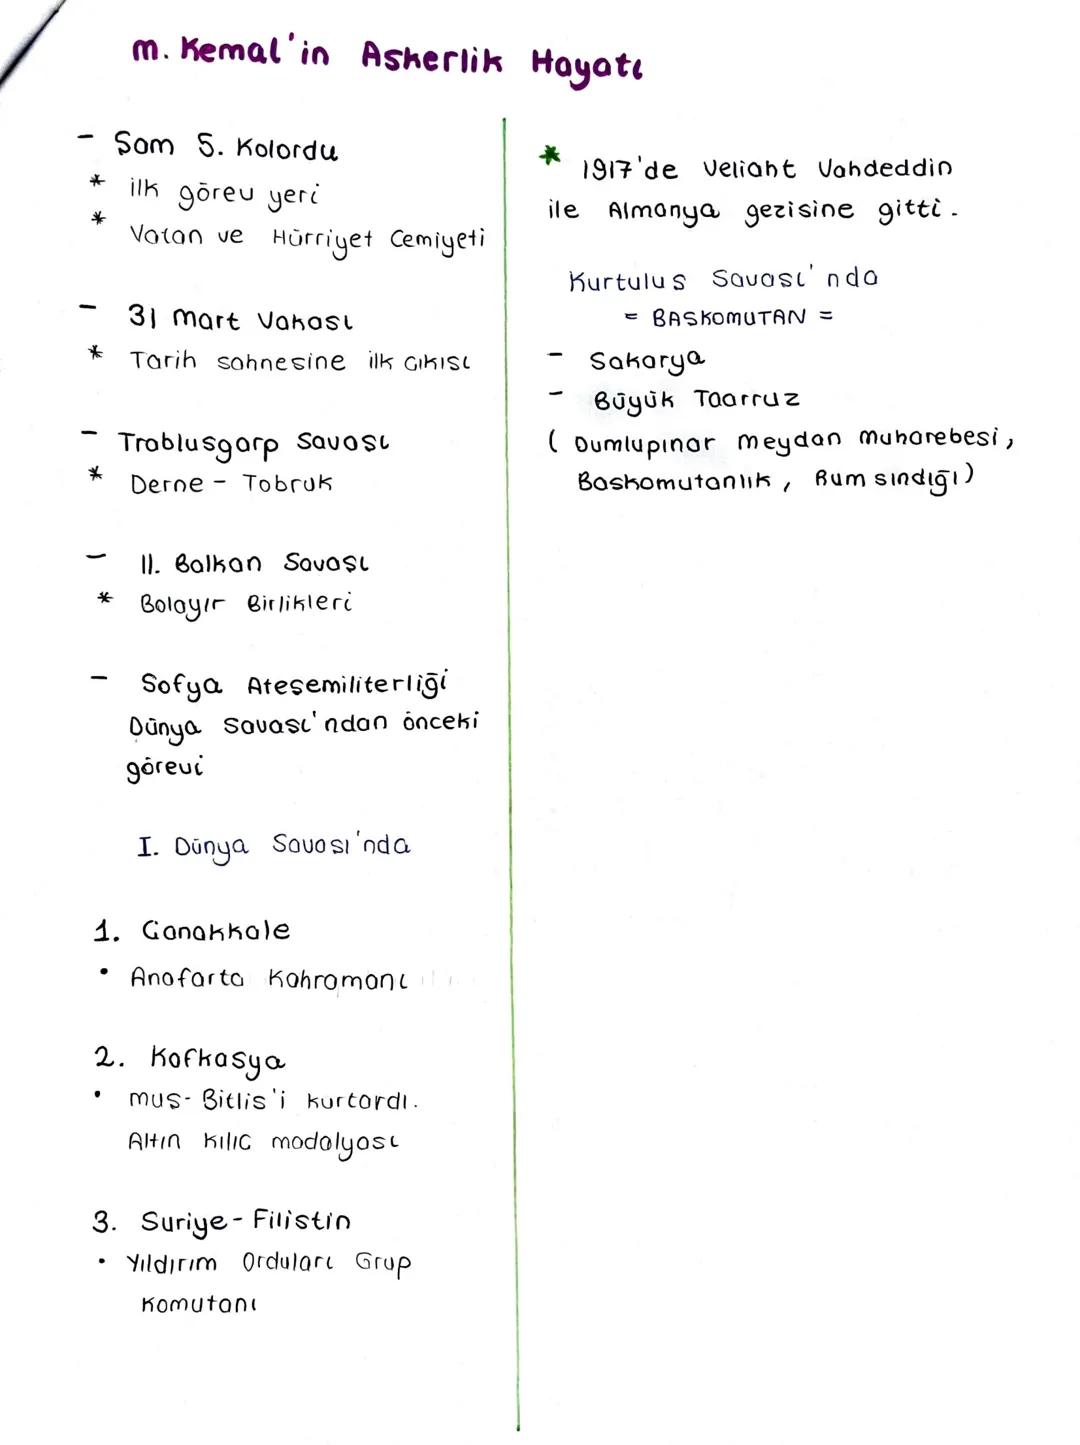 M. Kemal'in Askerlik Hayatı
- Şam 5. Kolordu
* ilk görev yeri
* Vatan ve Hürriyet Cemiyeti
- 31 Mart Vakası
* Tarih sahnesine ilk cıkısı
- Trablusgarp Savası
* Derne - Tobruk
- II. Balkan Savaşı
* Bolayır Birlikleri
- Sofya Ateşemiliterliği
Dünya savası'ndan önceki
görevi
I. Dünya Savası'nda
1. Canakkale
• Anafarta Kahramanı
2. Kafkasya
• mus- Bitlis'i kurtardı.
Altın kılıc madalyası
3. Suriye - Filistin
• Yıldırım Orduları Grup
Komutanı
* 1917'de Veliaht Vahdeddin
ile Almanya gezisine gitti.
Kurtulus Savası'nda
= BASKOMUTAN =
- Sakarya
- Büyük Taarruz
( Dumlupınar meydan muharebesi,
Baskomutanlık, Rum sındığı)